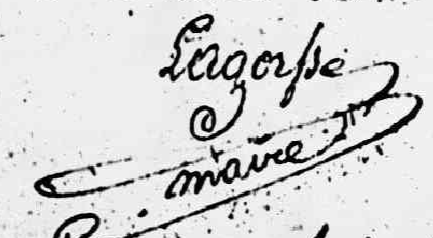 Lagorsse
maire